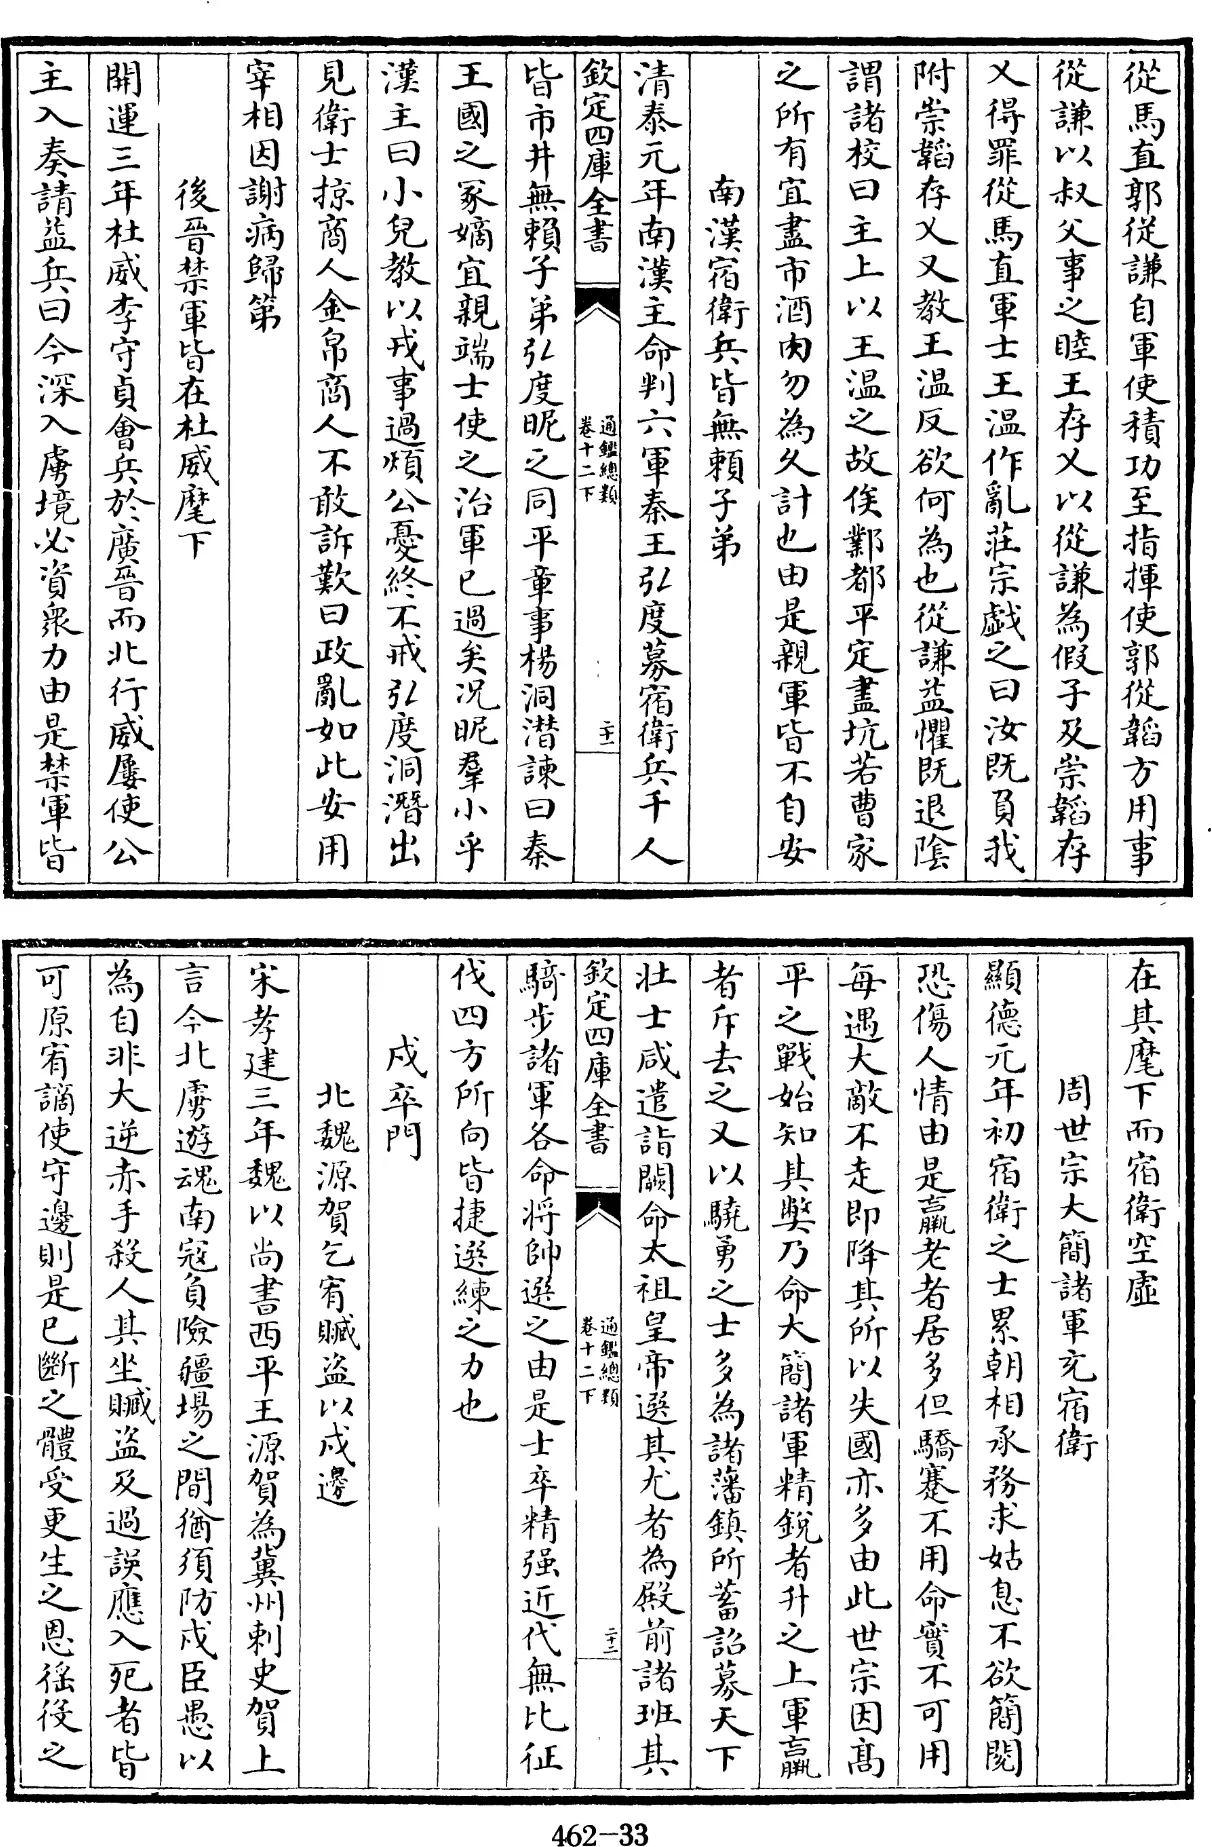 從馬直郭從謙自軍使積功至指揮使郭從韜方用事
從謙以叔父事之睦王存乂以從謙為假子及崇韜存
乂得罪從馬直軍士王溫作亂莊宗戲之曰汝既負我
附崇韜存乂又教王溫反欲何為也從謙益懼既退陰
謂諸校曰主上以王溫之故俟鄴都平定盡坑若曹家
之所有宜盡市酒肉勿為久計也由是親軍皆不自安
南漢宿衛兵皆無賴子弟
清泰元年南漢主命判六軍秦王弘度募宿衛兵千人
欽定四庫全書
通鑑總類
卷十二下
二十一
皆市井無賴子弟弘度昵之同平章事楊洞潛諫曰秦
王國之冢嫡宜親端士使之治軍已過矣况昵羣小乎
漢主曰小兒教以戎事過煩公憂終不戒弘度洞潛出
見衛士掠商人金帛商人不敢訴歎曰政亂如此安用
宰相因謝病歸第
後晉禁軍皆在杜威麾下
開運三年杜威李守貞會兵於廣晉而北行威屢使公
主入奏請益兵曰今深入虜境必資衆力由是禁軍皆
在其麾下而宿衛空虛
周世宗大簡諸軍充宿衛
顯德元年初宿衛之士累朝相承務求姑息不欲簡閱
恐傷人情由是羸老者居多但驕蹇不用命實不可用
每遇大敵不走即降其所以失國亦多由此世宗因高
平之戰始知其弊乃命大簡諸軍精銳者升之上軍羸
者斥去之又以驍勇之士多為諸藩鎮所蓄詔募天下
壯士咸遣詣闕命太祖皇帝選其尤者為殿前諸班其
欽定四庫全書
通鑑總類
卷十二下
二十二
騎步諸軍各命將帥選之由是士卒精强近代無比征
伐四方所向皆捷選練之力也
戍卒門
北魏源賀乞宥贓盜以戍邊
宋孝建三年魏以尚書西平王源賀為冀州刺史賀上
言今北虜遊魂南寇負險疆場之間猶須防戍臣愚以
為自非大逆赤手殺人其坐贓盜及過誤應入死者皆
可原宥謫使守邊則是已斷之體受更生之恩徭役之
462-33